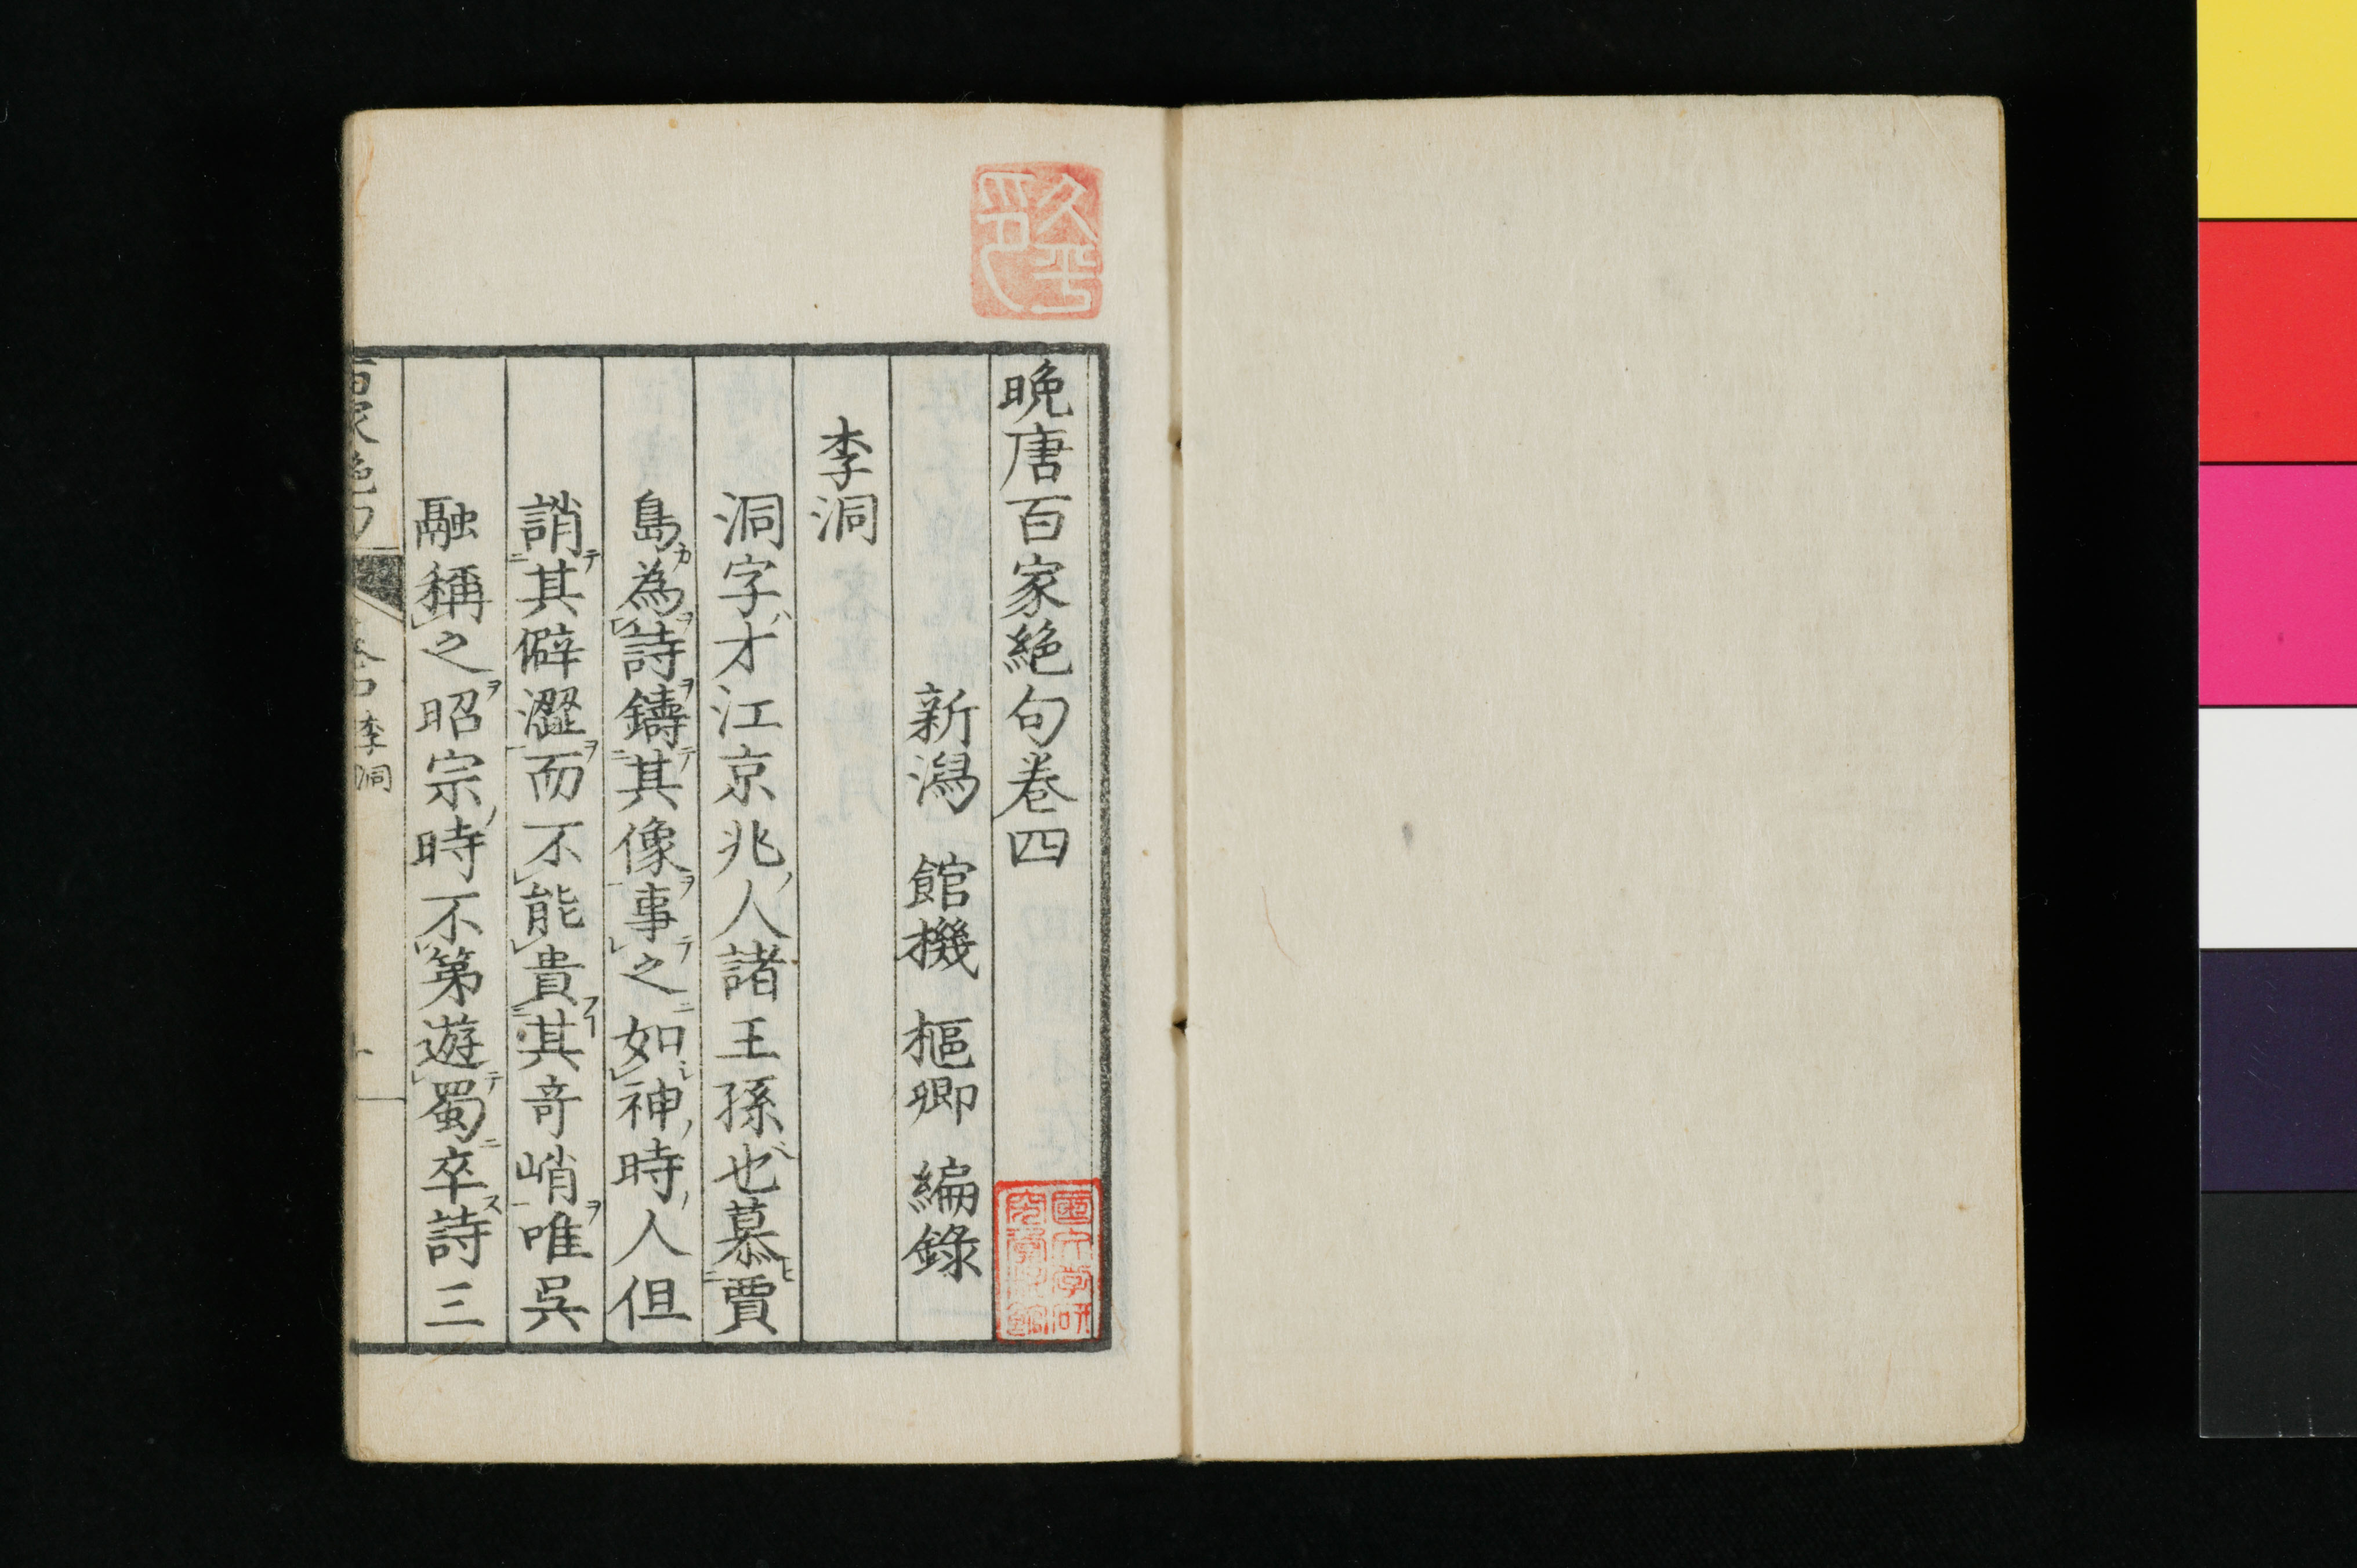 晩唐百家絶句巻四
新潟 館機 樞卿 編錄
李洞
洞字才江京兆ノ人諸王孫也慕ヒ賈
島カ為詩ヲ鑄テ其像ヲ事テ之如神時ノ人但
誚テ其僻澀ヲ而不能貴其奇峭ヲ唯吳
融稱之ヲ昭宗ノ時不第遊テ蜀ニ卒ス詩三
李洞
國文学研
究資料館